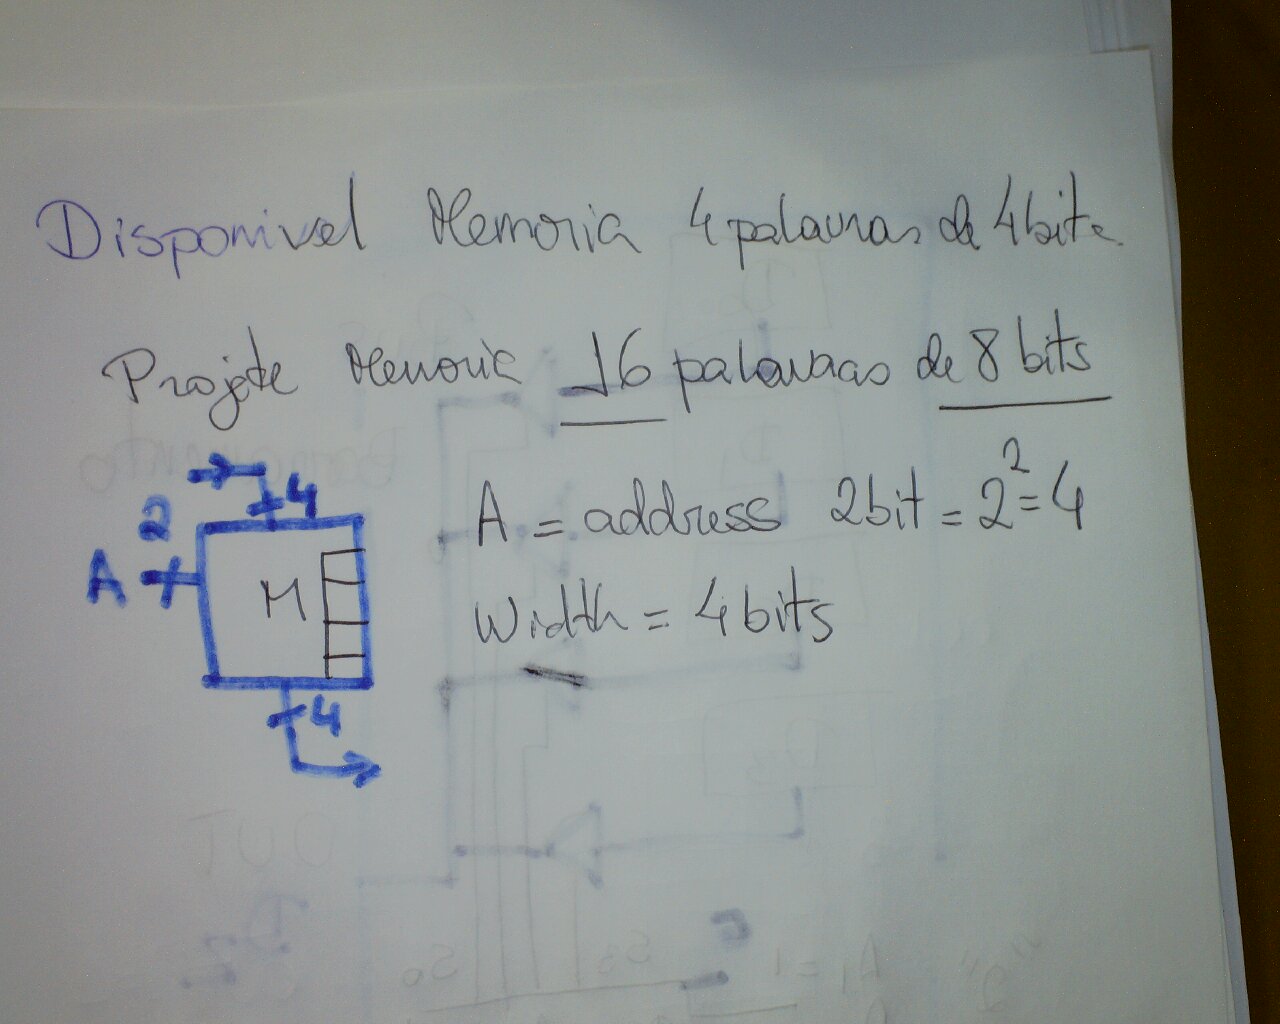 Disponivel Memoria 4 palavras de 4 bits
Projete Memoria 16 palavras de 8 bits
4
2
A = address 2bit = 2² = 4
A
M
Width = 4 bits
4